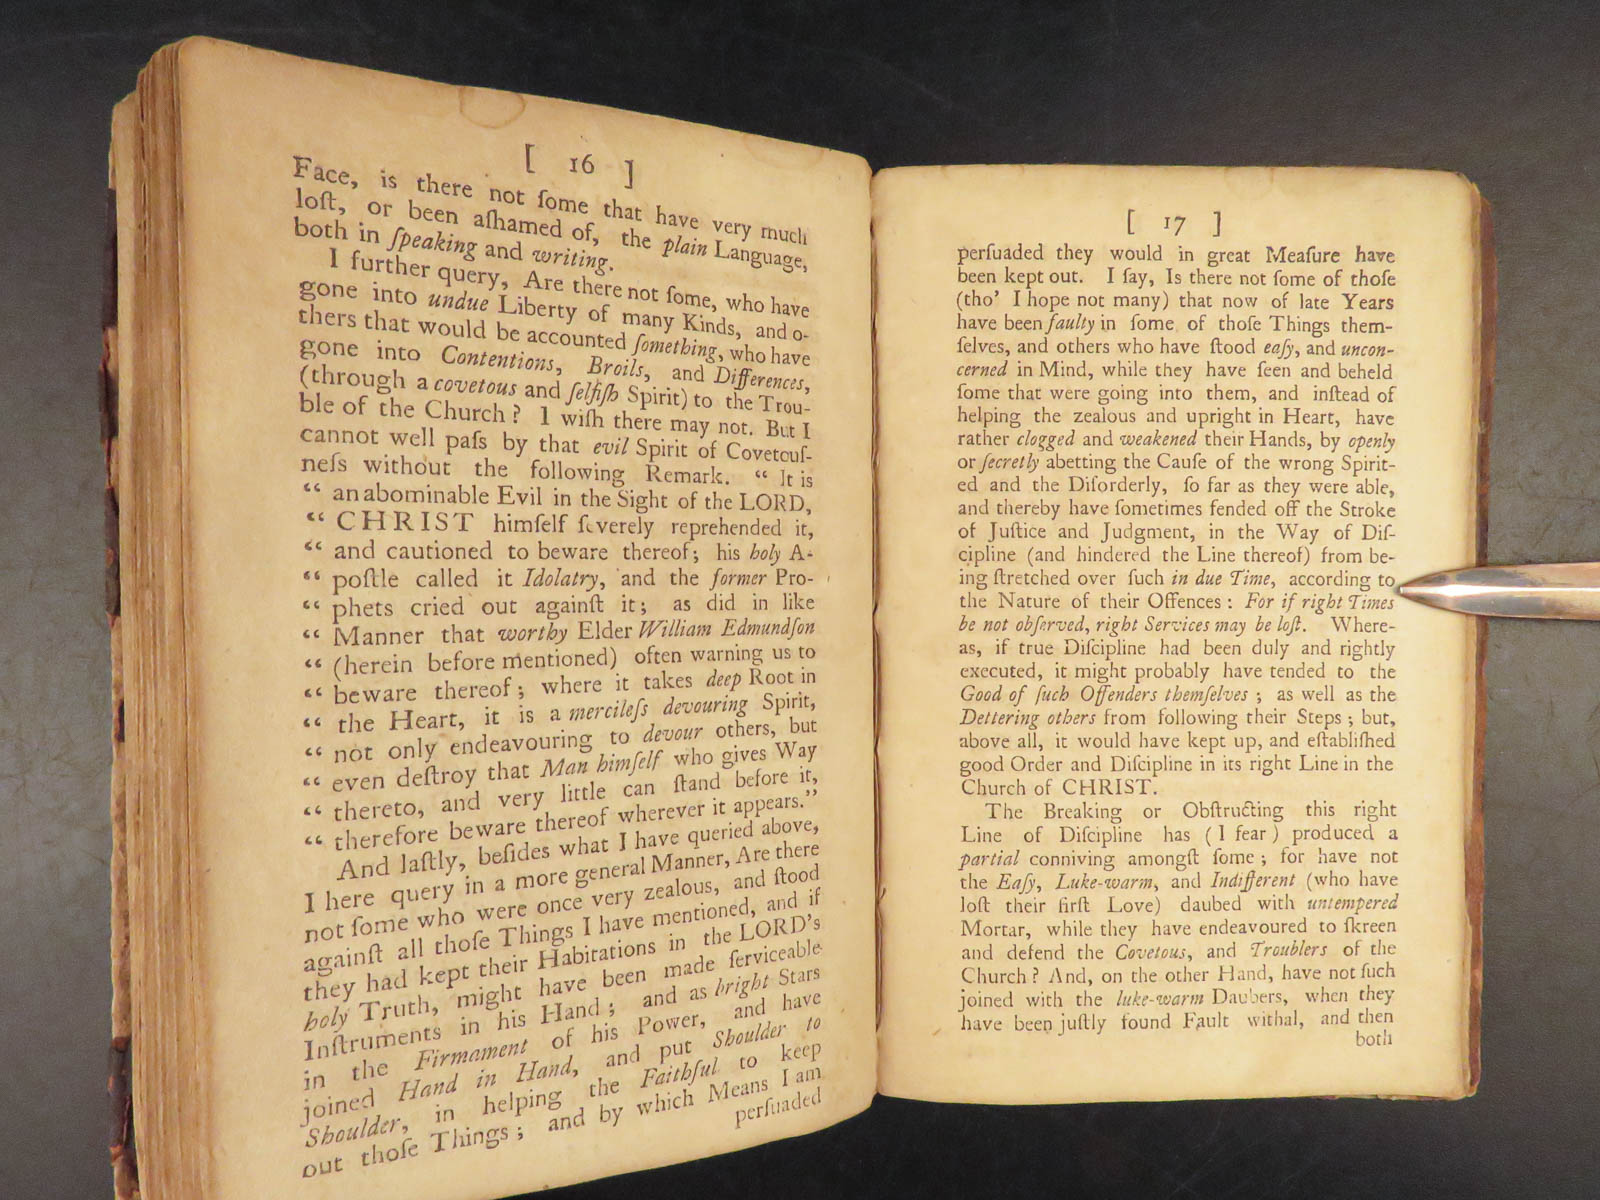 [ 16 ]
Face, is there not ſome that have very much
loſt, or been aſhamed of, the plain Language,
both in ſpeaking and writing.
I further query, Are there not ſome, who have
gone into undue Liberty of many Kinds, and o-
thers that would be accounted ſomething, who have
gone into Contentions, Broils, and Differences,
(through a covetous and ſelfiſh Spirit) to the Trou-
ble of the Church? I wiſh there may not. But I
cannot well paſs by that evil Spirit of Covetouſ-
neſs without the following Remark. “ It is
“ an abominable Evil in the Sight of the LORD,
“ CHRIST himſelf ſeverely reprehended it,
“ and cautioned to beware thereof; his holy A-
“ poſtle called it Idolatry, and the former Pro-
“ phets cried out againſt it; as did in like
“ Manner that worthy Elder William Edmundſon
“ (herein before mentioned) often warning us to
“ beware thereof; where it takes deep Root in
“ the Heart, it is a mercileſs devouring Spirit,
“ not only endeavouring to devour others, but
“ even deſtroy that Man himſelf who gives Way
“ thereto, and very little can ſtand before it,
“ therefore beware thereof wherever it appears.”
And laſtly, beſides what I have queried above,
I here query in a more general Manner, Are there
not ſome who were once very zealous, and ſtood
againſt all thoſe Things I have mentioned, and if
they had kept their Habitations in the LORD's
holy Truth, might have been made ſerviceable
Inſtruments in his Hand; and as bright Stars
in the Firmament of his Power, and have
joined Hand in Hand, and put Shoulder to
Shoulder, in helping the Faithful to keep
out thoſe Things; and by which Means I am
perſuaded
[ 17 ]
perſuaded they would in great Meaſure have
been kept out. I ſay, Is there not ſome of thoſe
(tho' I hope not many) that now of late Years
have been faulty in ſome of thoſe Things them-
ſelves, and others who have ſtood eaſy, and uncon-
cerned in Mind, while they have ſeen and beheld
ſome that were going into them, and inſtead of
helping the zealous and upright in Heart, have
rather clogged and weakened their Hands, by openly
or ſecretly abetting the Cauſe of the wrong Spirit-
ed and the Diſorderly, ſo far as they were able,
and thereby have ſometimes fended off the Stroke
of Juſtice and Judgment, in the Way of Diſ-
cipline (and hindered the Line thereof) from be-
ing ſtretched over ſuch in due Time, according to
the Nature of their Offences: For if right Times
be not obſerved, right Services may be loſt. Where-
as, if true Diſcipline had been duly and rightly
executed, it might probably have tended to the
Good of ſuch Offenders themſelves; as well as the
Dettering others from following their Steps; but,
above all, it would have kept up, and eſtabliſhed
good Order and Diſcipline in its right Line in the
Church of CHRIST.
The Breaking or Obſtructing this right
Line of Diſcipline has (I fear) produced a
partial conniving amongſt ſome; for have not
the Eaſy, Luke-warm, and Indifferent (who have
loſt their firſt Love) daubed with untempered
Mortar, while they have endeavoured to ſkreen
and defend the Covetous, and Troublers of the
Church? And, on the other Hand, have not ſuch
joined with the luke-warm Daubers, when they
have been juſtly found Fault withal, and then
both